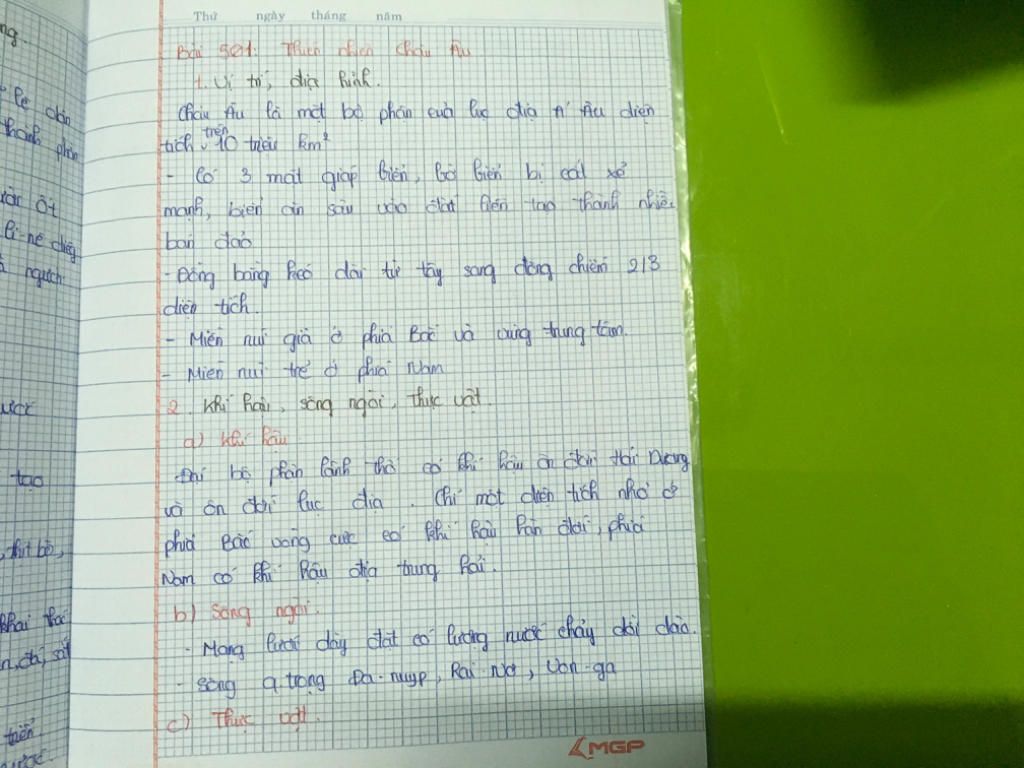 Thứ ngày tháng năm
Bài 51: Thiên nhiên Châu Âu
1. Vị trí, địa hình.
Châu Âu là một bộ phận của lục địa Á Âu diện
tích trên 10 triệu km²
- Có 3 mặt giáp biển, bờ biển bị cắt xẻ
mạnh, biển ăn sâu vào đất liền tạo thành nhiều
bán đảo
- Đồng bằng kéo dài từ tây sang đông chiếm 2/3
diện tích.
- Miền núi già ở phía Bắc và vùng trung tâm.
- Miền núi trẻ ở phía Nam
2. Khí hậu, sông ngòi, thực vật.
a) Khí hậu
Đại bộ phận lãnh thổ có khí hậu ôn đới Hải Dương
và ôn đới lục địa. Chỉ một diện tích nhỏ ở
phía Bắc vòng cực có khí hậu hàn đới, phía
Nam có khí hậu địa trung hải.
b) Sông ngòi.
- Mạng lưới dày đặt có lượng nước chảy dồi dào.
- Sông q.trọng Đa-nuyp, Rai-nơ, Von-ga
c) Thực vật.
MGP
ng.
thành phần
ôt
người
tạo
thịt bò,
khai thác
n, đá, sắt
triển
được.